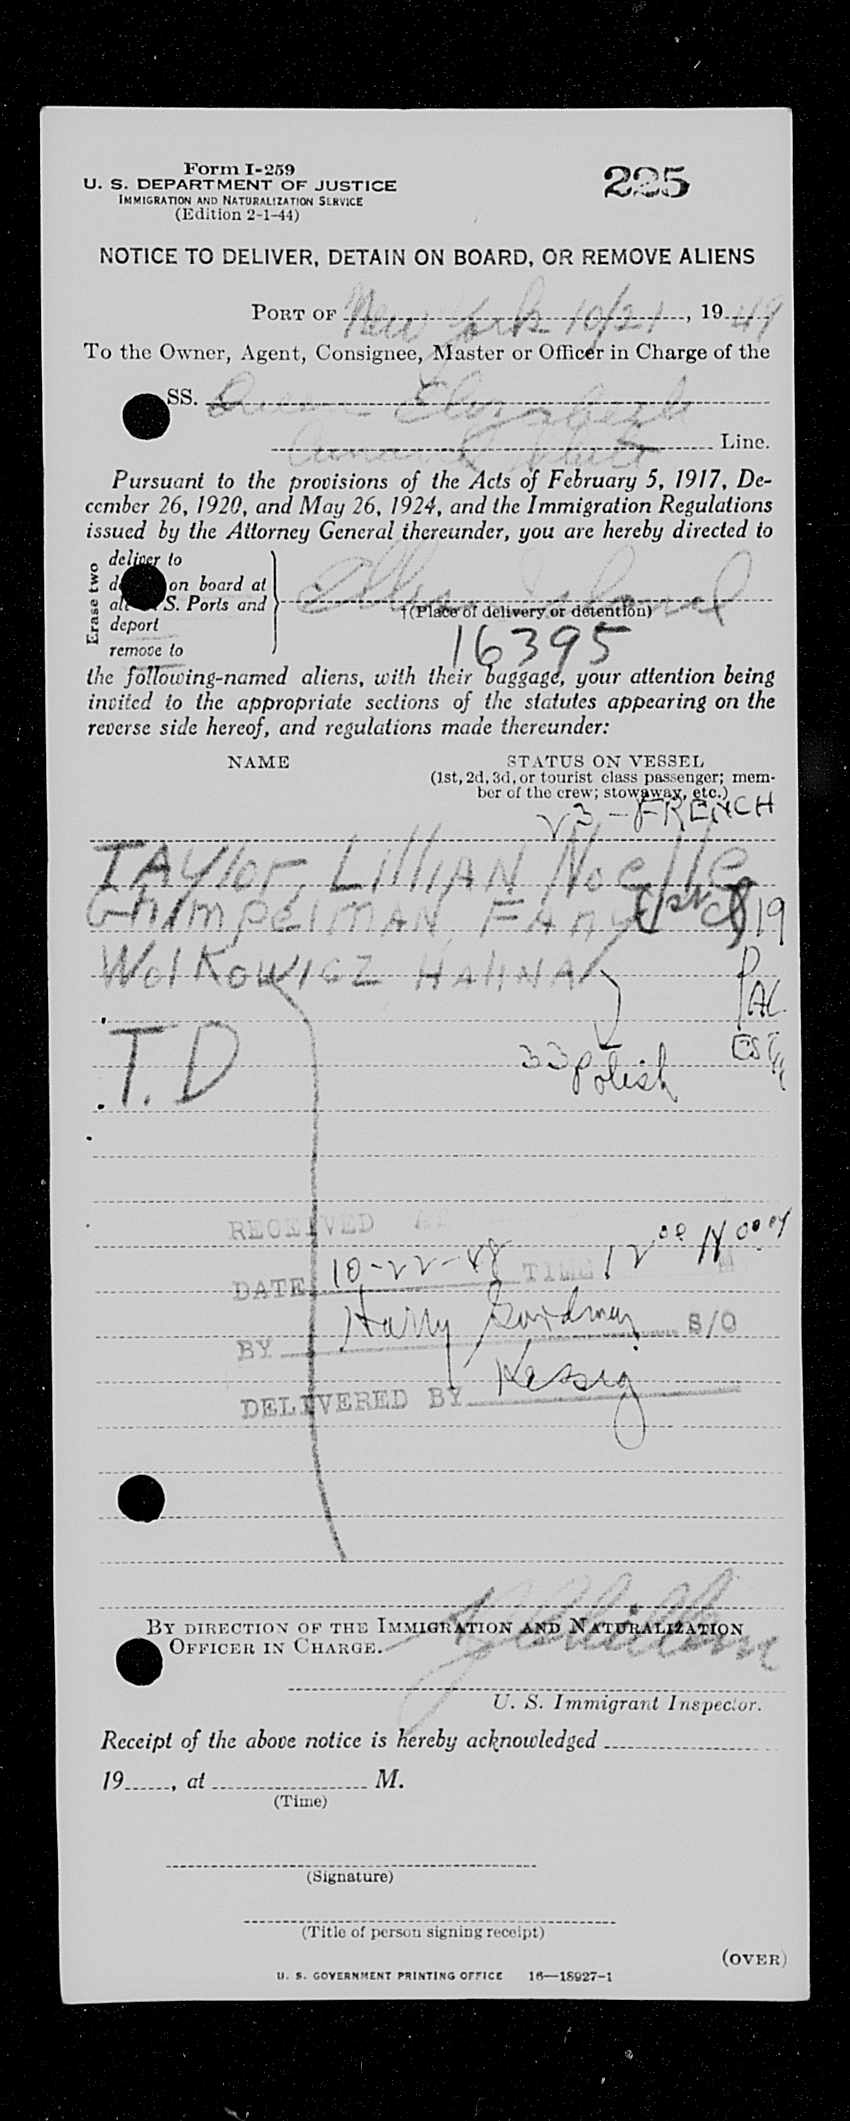 Form I-259
225
U. S. DEPARTMENT OF JUSTICE
IMMIGRATION AND NATURALIZATION SERVICE
(Edition 2-1-44)
NOTICE TO DELIVER, DETAIN ON BOARD, OR REMOVE ALIENS
PORT OF New York 10/21, 19 49
To the Owner, Agent, Consignee, Master or Officer in Charge of the
SS. Queen Elizabeth
Cunard White Line.
Pursuant to the provisions of the Acts of February 5, 1917, De-
cember 26, 1920, and May 26, 1924, and the Immigration Regulations
issued by the Attorney General thereunder, you are hereby directed to
Erase two
deliver to
on board at
S. Ports and
deport
remove to
Ellis Island
†(Place of delivery or detention)
16395
the following-named aliens, with their baggage, your attention being
invited to the appropriate sections of the statutes appearing on the
reverse side hereof, and regulations made thereunder:
NAME
STATUS ON VESSEL
(1st, 2d, 3d, or tourist class passenger; mem-
ber of the crew; stowaway, etc.)
23 - FRENCH
TAYlor, LilliAN Noelle
FANY 1st cl 19
WolKowicz HAliNA
PAL
EST
T. D
33 Polish
RECEIVED
DATE 10-22-48 TIME 12 00 Noon M
BY Harry Goodman S/O
DELIVERED BY Hessig
BY DIRECTION OF THE IMMIGRATION AND NATURALIZATION
OFFICER IN CHARGE.
U. S. Immigrant Inspector.
Receipt of the above notice is hereby acknowledged
19 , at M.
(Time)
(Signature)
(Title of person signing receipt)
(OVER)
U. S. GOVERNMENT PRINTING OFFICE 16—18927-1